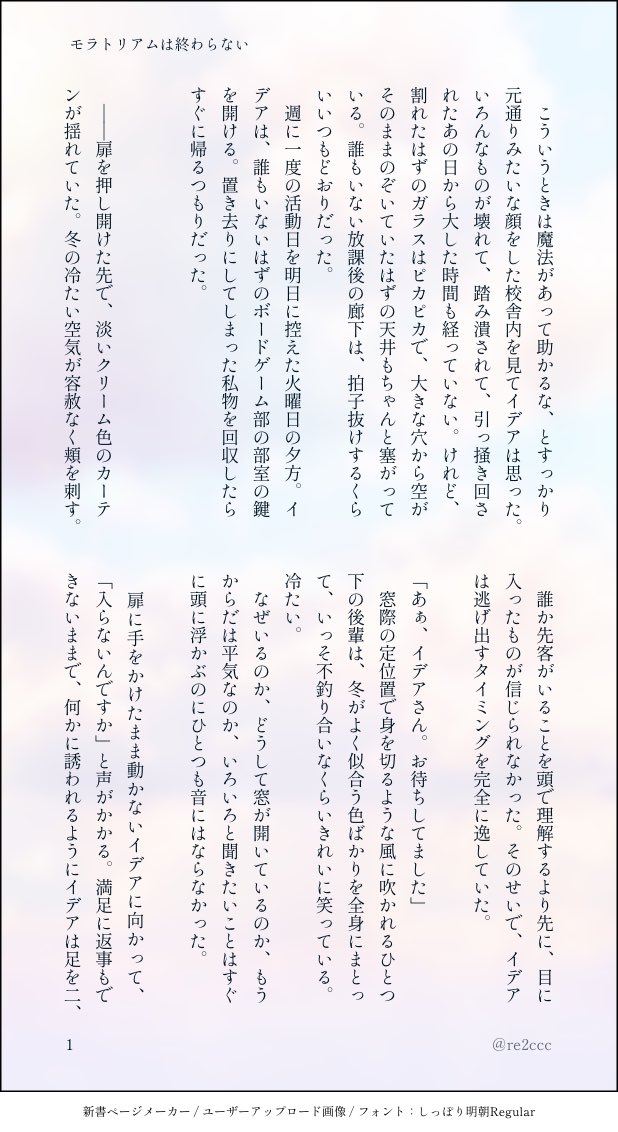 モラトリアムは終わらない
こういうときは魔法があって助かるな、とすっかり
元通りみたいな顔をした校舎内を見てイデアは思った。
いろんなものが壊れて、踏み潰されて、引っ掻き回さ
れたあの日から大した時間も経っていない。けれど、
割れたはずのガラスはピカピカで、大きな穴から空が
そのままのぞいていたはずの天井もちゃんと塞がって
いる。誰もいない放課後の廊下は、拍子抜けするくら
いいつもどおりだった。
週に一度の活動日を明日に控えた火曜日の夕方。イ
デアは、誰もいないはずのボードゲーム部の部室の鍵
を開ける。置き去りにしてしまった私物を回収したら
すぐに帰るつもりだった。
――扉を押し開けた先で、淡いクリーム色のカーテ
ンが揺れていた。冬の冷たい空気が容赦なく頬を刺す。
誰か先客がいることを頭で理解するより先に、目に
入ったものが信じられなかった。そのせいで、イデア
は逃げ出すタイミングを完全に逸していた。
「あぁ、イデアさん。お待ちしてました」
窓際の定位置で身を切るような風に吹かれるひとつ
下の後輩は、冬がよく似合う色ばかりを全身にまとっ
て、いっそ不釣り合いなくらいきれいに笑っている。
冷たい。
なぜいるのか、どうして窓が開いているのか、もう
からだは平気なのか、いろいろと聞きたいことはすぐ
に頭に浮かぶのにひとつも音にはならなかった。
扉に手をかけたまま動かないイデアに向かって、
「入らないんですか」と声がかかる。満足に返事もで
きないままで、何かに誘われるようにイデアは足を二、
1
@re2ccc
新書ページメーカー / ユーザーアップロード画像 / フォント：しっぽり明朝Regular